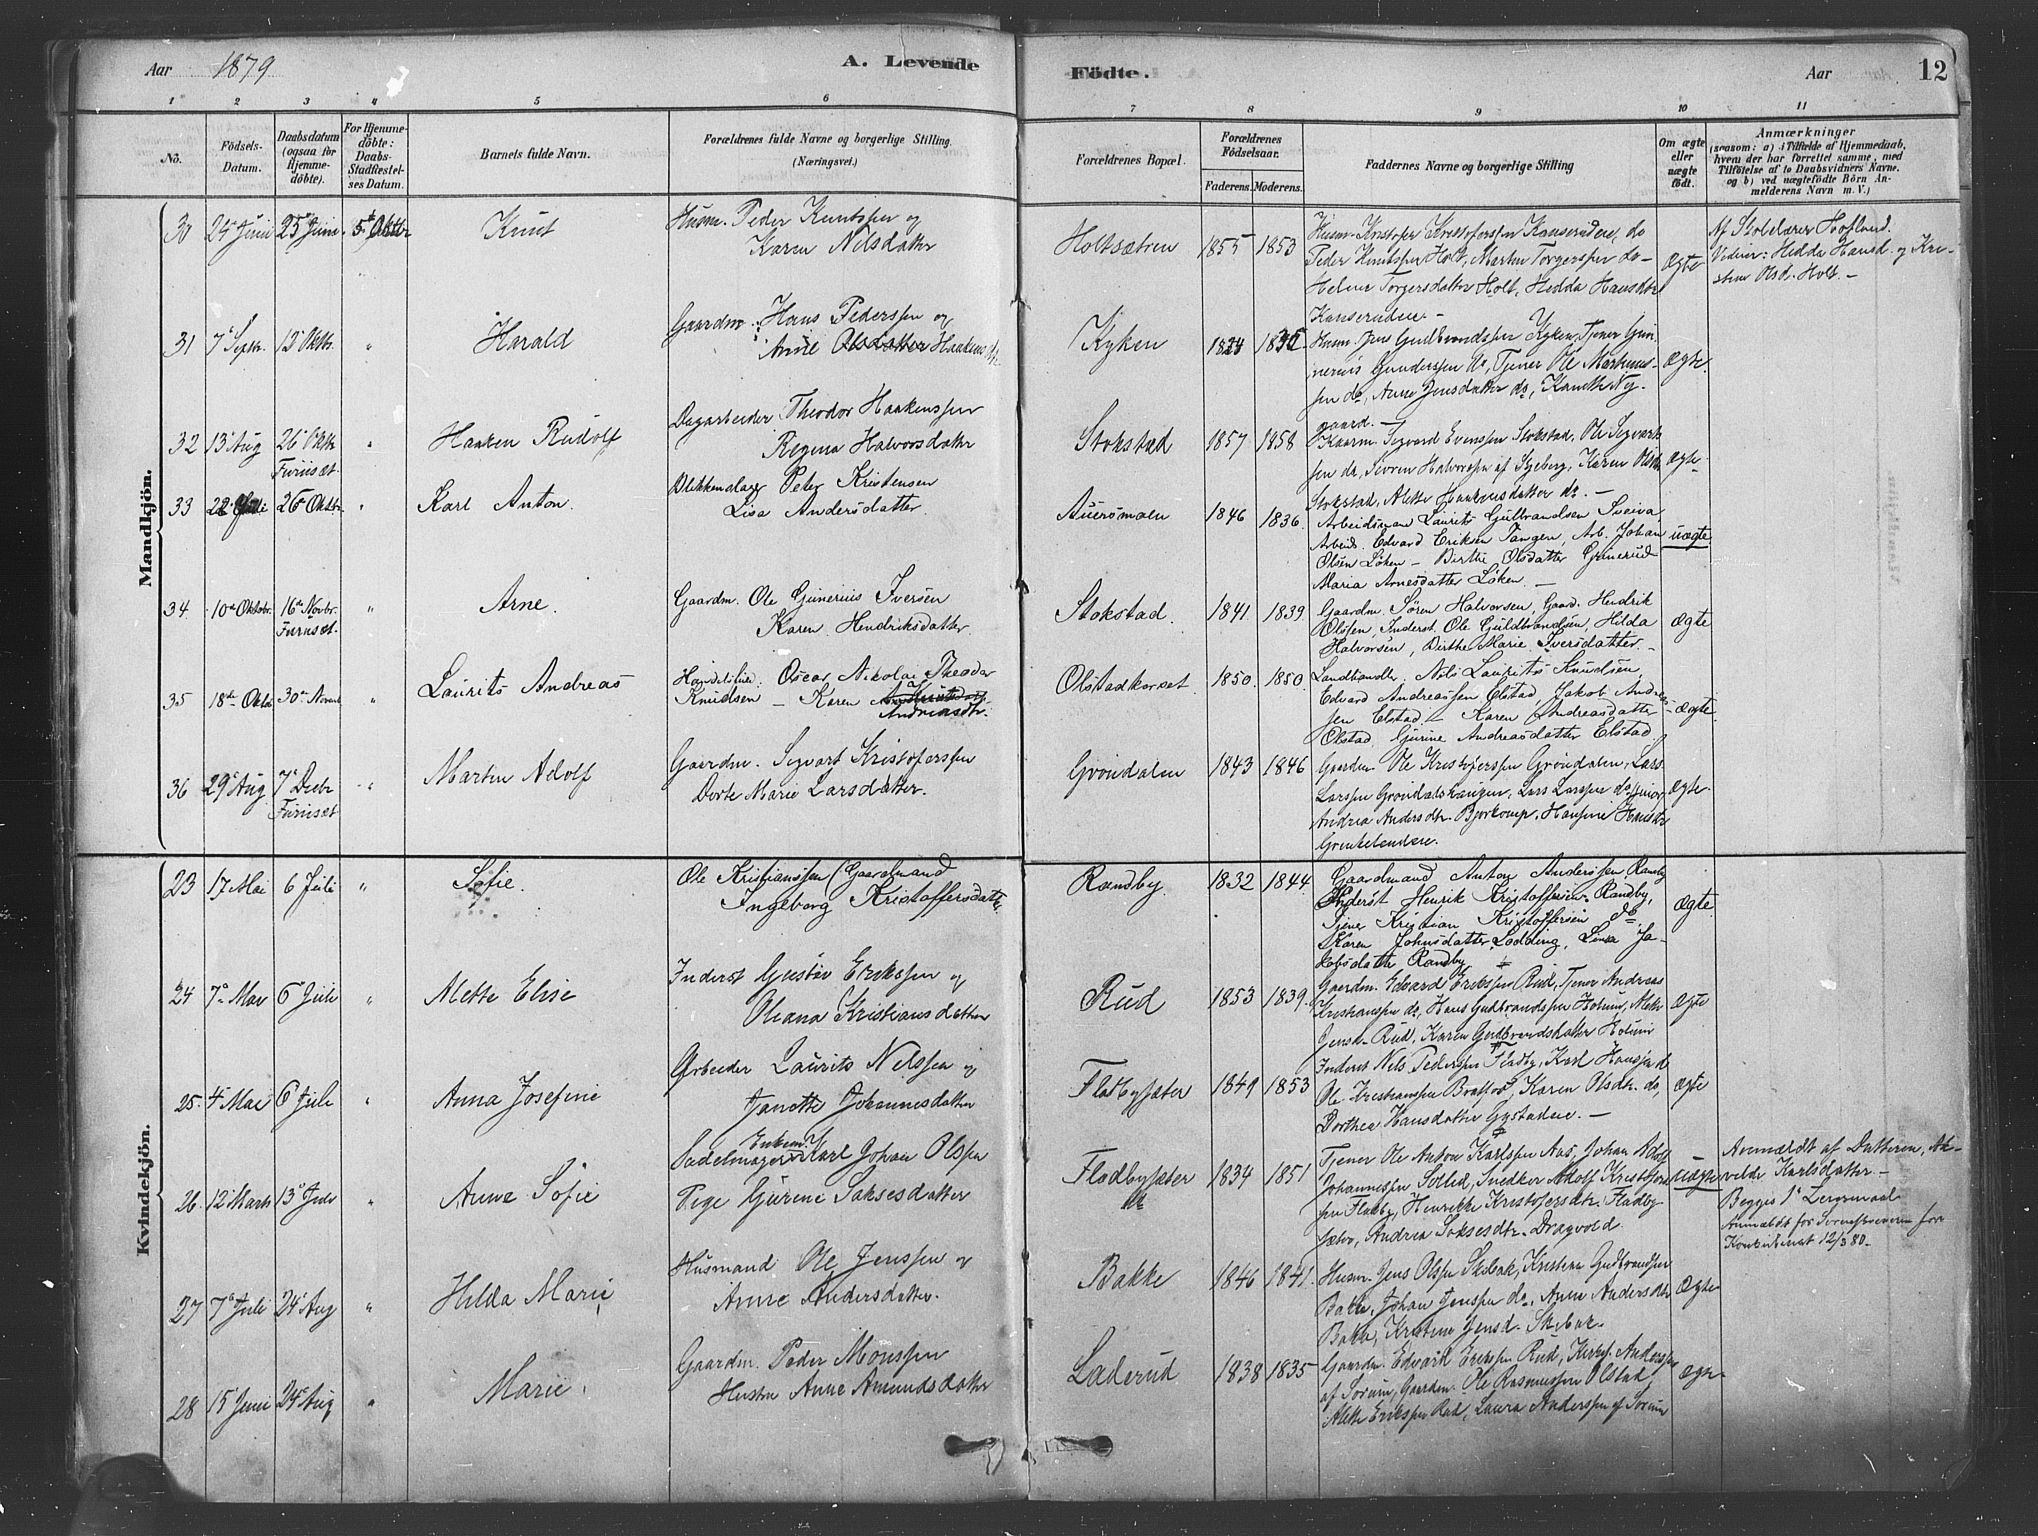 Aar 1879
A. Levende Födte.
Aar
12
1 2 3 4 5 6 7 8 9 10 11
No.
Födsels-Datum.
Daabsdatum (ogsaa for Hjemme-döbte).
For Hjemme-döbte: Daabs-Stadfæstel-ses Datum.
Barnets fulde Navn.
Forældrenes fulde Navne og borgerlige Stilling. (Næringsvei.)
Forældrenes Bopæl.
Forældrenes Födselsaar.
Faderens. Moderens.
Faddernes Navne og borgerlige Stilling
Om ægte eller uægte födt.
Anmærkninger
(saasom: a) i Tilfælde af Hjemmedaab,
hvem der har forrettet samme, med
Tilföielse af to Daabsvidners Navne.
og b) ved uægtefödte Börn An-
melderens Navn m. V.)
Mandkjön.
30 24de Juni 25de Juni 5te Oktbr Knut
Husm. Peder Knutssen og
Karen Nilsdatter
Holtsætren 1855 1853
Husm. Kristofer Kristoferssen Kanserudeie, do
Peder Knutssen Holt, Martin Torgerssen do
Helene Torgersdatter Holt, Hedda Hansdtr
Kanserudeie. –
Ægte
Af Skolelærer Hoflund.
Vidner: Hedda Hansd. og Kri-
stine Olsd. Holt. –
31 7de Septbr. 12 Oktbr. " Harald
Gaardm. Hans Pederssen og
Anne Olsdatter Haakensdtr.
Kyken 1824 1835
Husm. Jens Gudbrandssen Kyken, Tjener Gun-
nerius Gunderssen do, Tjener Ole Markus-
sen do, Anne Jensdatter do, Ny-
gaard. –
Ægte.
32 13de Aug 26de Oktbr Furuset. " Haaken Rudolf
Dagarbeider Theodor Haakenssen
Regina Halvorsdatter
Stokstad 1857 1858
Gaarm. Segvard Evenssen Stokstad, Ole Segvart-
sen do, Halvorssen af Skjeberg, Karen Olsdtr
Stokstad, Alette Haakensdatter do. –
Ægte
33 26de Oktbr. " Karl Anton.
Blikkenslager Peter Kristensen
Lisa Andersdatter.
Auersmoen 1846 1836.
Arbeidsman Laurits Gulbrandsen Sveiva,
Arbeid. Edvard Eriksen Tangen, Arb. Johan
Olsen Løken – Birthe Olsdatter Grinerud
Maria Arnesdatter Løken. –
uægte
34 10de Oktobr. 16de Novbr. Furuset. " Arne.
Gaardm. Ole Gunerius Iversen
Karen Hendriksdatter.
Stokstad. 1841. 1839.
Gaardm. Søren Halvorsen, Gaard. Hendrik
Olssen, Inderst. Ole Guldbrandsen, Hilda
Halvorsen, Birthe Marie Iversdatter. –
Ægte
35 18de Oktbr 30te Novemb " Laurits Andreas
Handelsbet. Oscar Nikolai Theodor
Knudsen – Karen
Andreasdtr.
Olstadkorset 1850. 1850.
Landhandler. Nils Laurits Knudsen,
Edvard Andreassen Elstad, Jakob Andreas-
sen Elstad – Karen Andreasdatter
Olstad, Gurine Andreasdatter Elstad.
ægte.
36 29de Aug 7de Decbr Furuset " Martin Adolf
Gaardm. Segvart Kristoferssen
Dorte Marie Larsdatter.
Gröndalen 1843 1846
Gaardm. Ole Kristoferssen Gröndalen, Lars
Larssen Gröndalshaugen, Lars Larssen do junior
Andrea Andersdtr. Bjorkomp, Hansine Hansdtr
Ægte.
Kvindekjön.
23 17 Mai 6 Juli " Sofie.
Ole Kristianssen (Gaardmand
Ingeborg Kristoffersdatter.
Randby 1832 1844
Gaardmand Anton Anderssen Randby
Inderst Henrik Kristoffersen Randby,
Tjener Kristian Kristoffersen do
Karen Johnsdatter Lodding, Lina Ja-
kobsdatter Randby
Ægte.
24 7de Mai 6te Juli " Mette Elise
Inderst Gustav Erikssen og
Oleana Kristiansdatter
Rud 1853 1839.
Gaardm. Edvard Erikssen Rud, Tjener Andreas
Kristianssen do, Hans Gudbrandssen Holum, Mette
Jensd. Rud, Karen Gudbrandsdatter Holum
Ægte
25. 4de Mai 6te Juli " Anna Josefine
Arbeider Laurits Nilssen og
Janette Johannesdatter
Fladbysæter 1849 1853
Inderst Nils Pederssen Fladby, Karl Hanssen do
Ole Kristianssen Bratfos, Karen Olsdtr. do,
Dorthea Hansdatter Gystadeie. –
ægte
26. 12te Marts 13de Juli " Anne Sofie
Sadelmager Enkem. Karl Johan Olssen
Pige Gurene Saksesdatter
Fladbysæter do 1834 1851
Tjener Ole Anton Karlssen Aas, Johan Adolf
Johannessen Sollid, Snedker Adolf Kristofer-
sen Fladby, Henrikke Kristofersdtr. Fladby-
sætre, Andrea Saksesdtr. Dragvold.
uægte
Anmældt af Datteren, Al-
vilde Karlsdatter. –
Begges 1ste Leiermaal
Anmældt for Sorenskriveren for
Konkubinat 12/3 80. –
27 7de Juli 24de Aug " Hilda Marie
Husmand Ole Jenssen og
Anne Andersdatter.
Bakke 1846 1841.
Husm. Jens Olssen Skibak, Kristian Gudbrandssen
Bakke, Johan Jenssen do, Anne Andersdtr
Bakke, Kristine Jensd. Skibak.
Ægte
28 15de Juni 24de Aug " Marie
Gaardm. Peder Monssen
Hustru Anne Amundsdatter
Laderud 1838 1835
Gaardm. Edvard Erikssen Rud, Anderssen
af Sorum, Gaardm. Ole Rasmussen Olstad,
Alette Erikssen Rud, Laura Anderssen af Sorum
Ægte